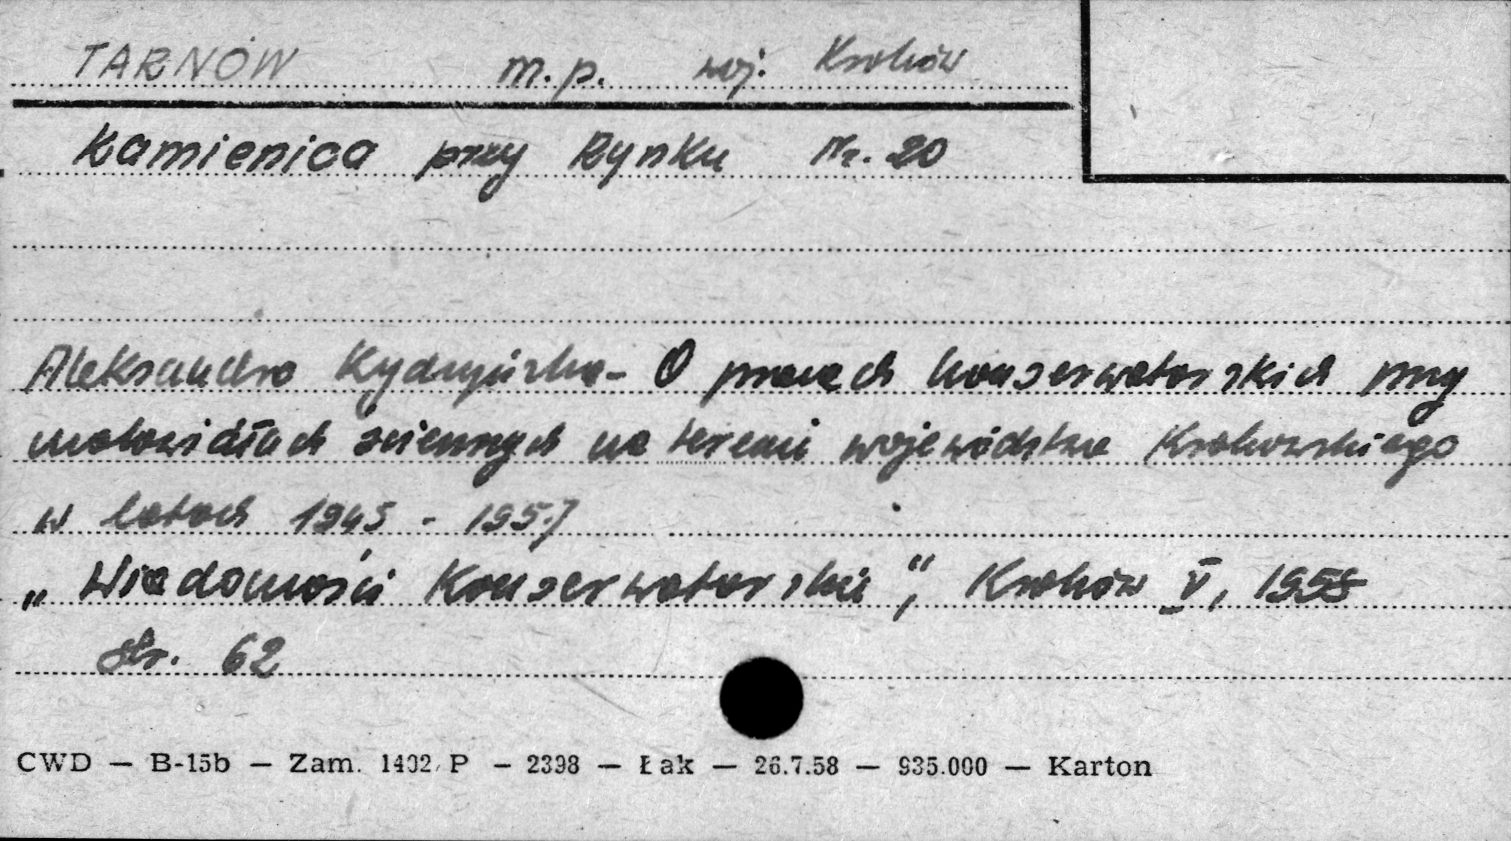 TARNÓW m.p. woj. Kraków
Kamienica przy Rynku Nr. 20
Aleksandra Kydryńska - O pracach konserwatorskich przy
malowidłach ściennych na terenie województwa Krakowskiego
w latach 1945 - 1957
„Wiadomości Konserwatorskie", Kraków V, 1958
str. 62
CWD — B-15b — Zam. 1402/P — 2398 — Łak — 26.7.58 — 935.000 — Karton